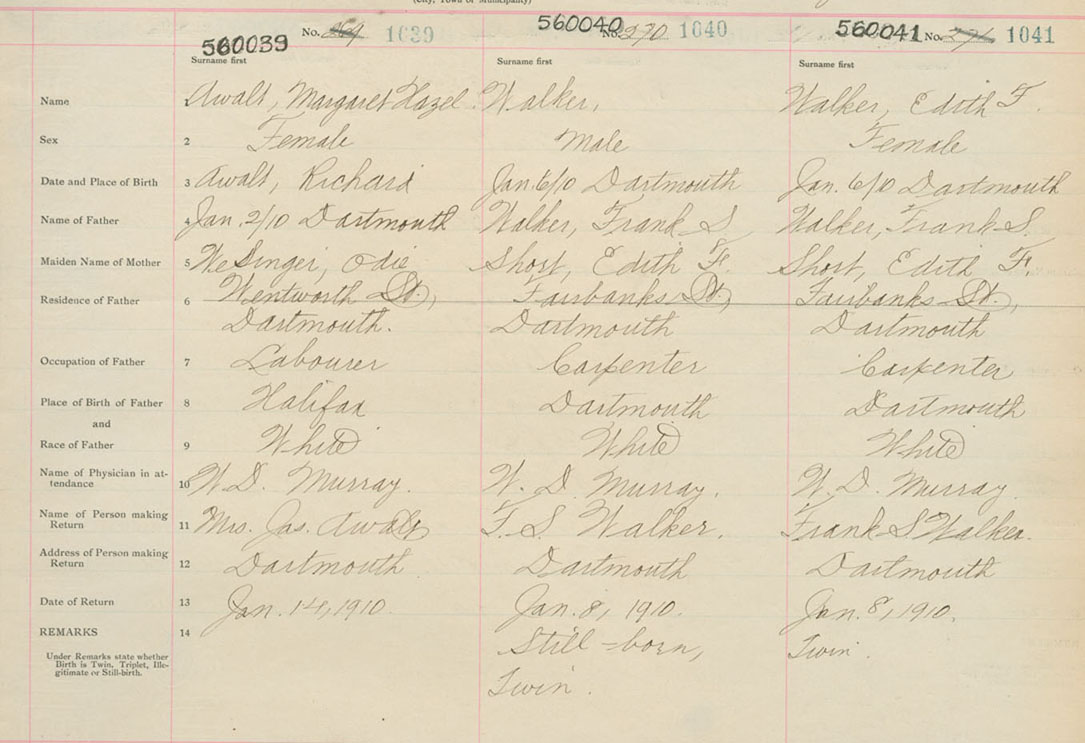 (City, Town or Municipality)
560039 No. 269 1039 560040 No. 270 1040 560041 No. 271 1041
Surname first Surname first Surname first
Name 1 Awalt, Margaret Hazel Walker, Walker, Edith F.
Sex 2 Female Male Female
Date and Place of Birth 3 Awalt, Richard Jan 6/10 Dartmouth Jan. 6/10 Dartmouth
Name of Father 4 Jan. 2/10 Dartmouth Walker, Frank S. Walker, Frank S.
Maiden Name of Mother 5 Odie Short, Edith F. Short, Edith F.
Residence of Father 6 Wentworth St., Fairbanks St., Fairbanks St.,
Dartmouth. Dartmouth Dartmouth
Occupation of Father 7 Labourer Carpenter Carpenter
Place of Birth of Father 8 Halifax Dartmouth Dartmouth
and
Race of Father 9 White White White
Name of Physician in at-
tendance 10 W. D. Murray. W. D. Murray. W. D. Murray.
Name of Person making
Return 11 Mrs. Jas. Awalt F. S. Walker. Frank S Walker.
Address of Person making
Return 12 Dartmouth Dartmouth Dartmouth
Date of Return 13 Jan. 14, 1910. Jan. 8, 1910. Jan. 8, 1910.
REMARKS 14 Still-born, Twin.
Under Remarks state whether
Birth is Twin, Triplet, Ille-
gitimate or Still-birth.
Twin.